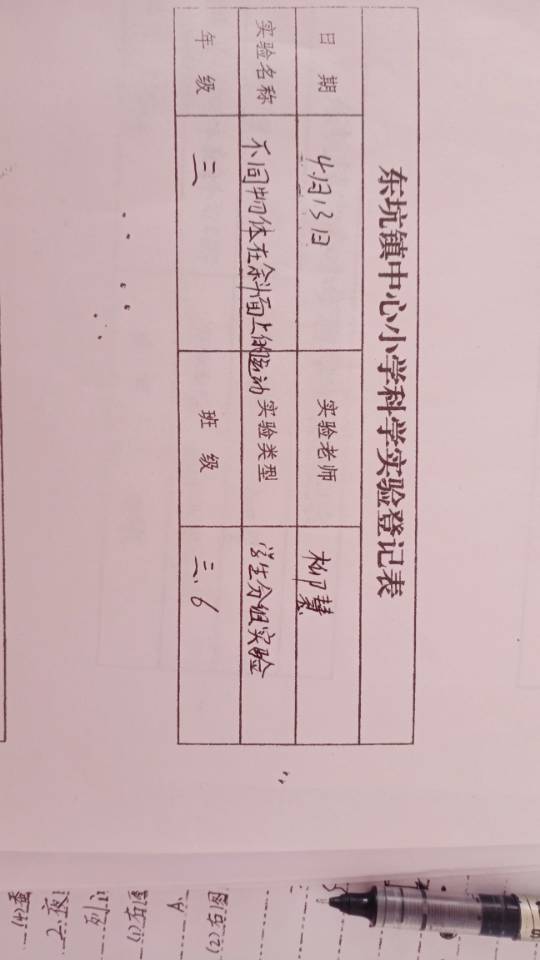 东坑镇中心小学科学实验登记表
日 期 4月13日 实验老师 柳慧
实验名称 不同物体在斜面上的运动 实验类型 学生分组实验
年 级 三 班 级 三.6
图(2)
图(1)